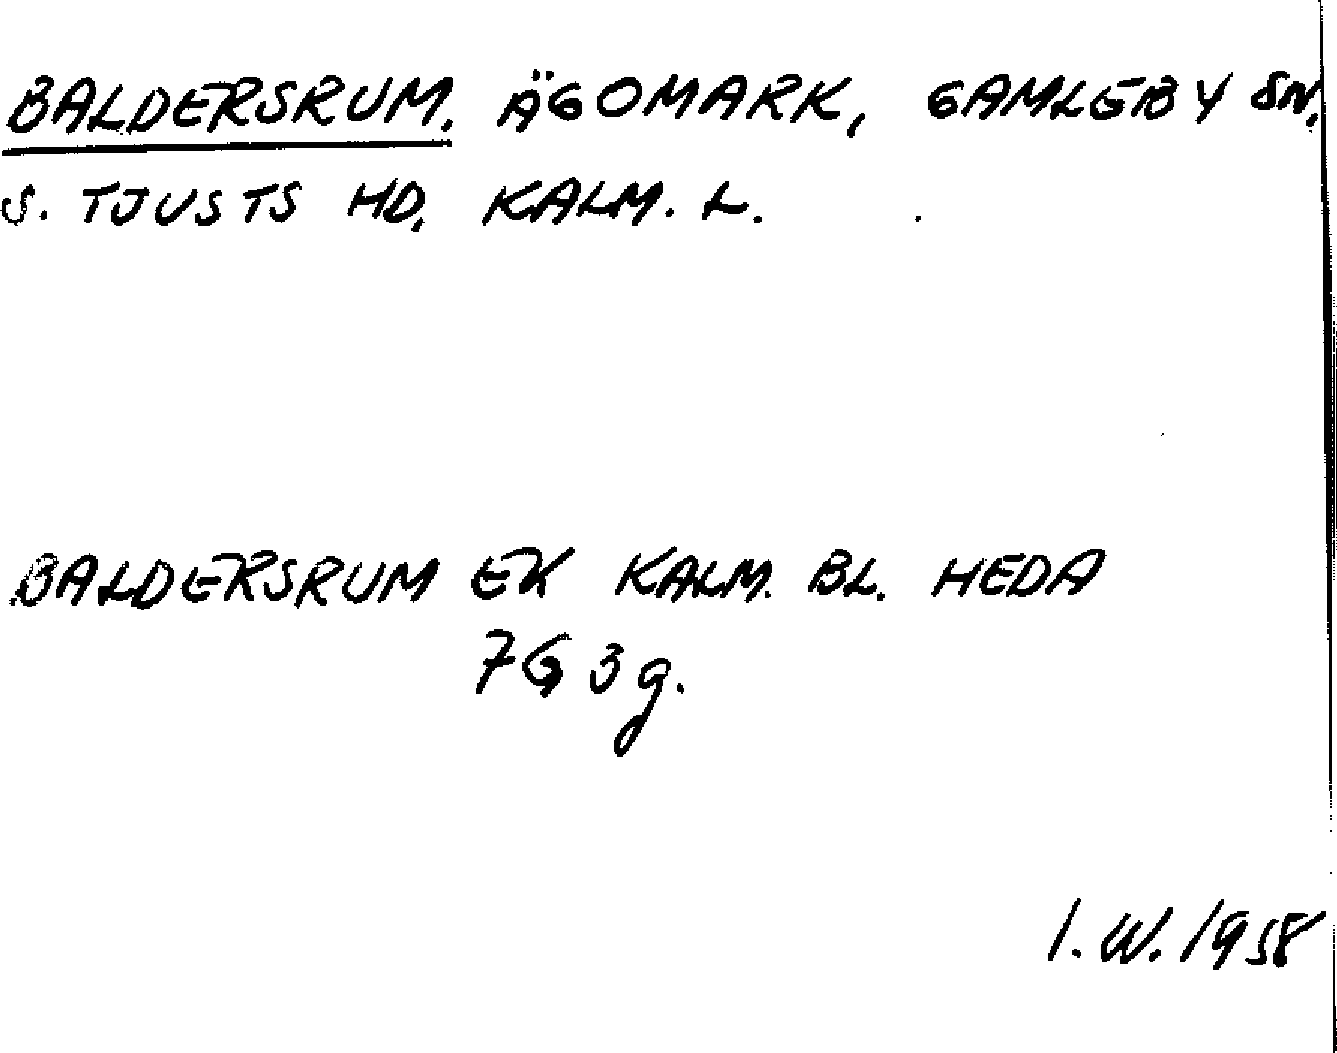 BALDERSRUM. ÄGOMARK, GAMLEBY SN.
S. TJUSTS HD. KALM. L.
BALDERSRUM EK KALM. BL. HEDA
7G 3g.
I.W. 1958